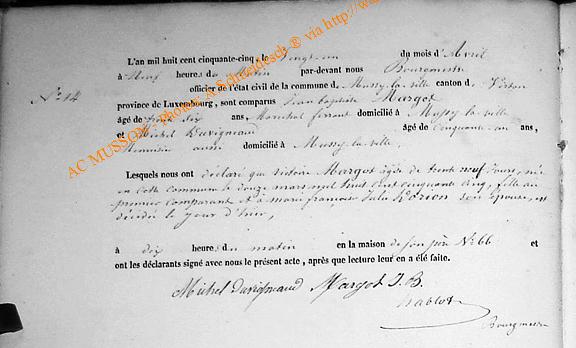 L'an mil huit cent cinquante-cinq, le vingt-un du mois d'Avril
à Neuf heures du matin par-devant nous Bourgmestre
N° 14
officier de l'état civil de la commune de Mussy la ville canton de Virton
province de Luxembourg, sont comparus Jean baptiste Margot
âgé de trente dix ans, Maréchal ferrant domicilié à Mussy-la-ville
et Michel Duvigneaud âgé de Cinquante-un ans,
Menuisier aussi domicilié à Mussy-la-ville
Lesquels nous ont déclaré que Victoire Margot âgée de trente neuf jours, née
en cette commune le douze mars mil huit cent cinquante cinq, fille du
premier comparant et de marie françoise Julie Lorion son épouse, est
décédée le jour d'hier,
à dix heures du matin en la maison de son père N° 66 et
ont les déclarants signé avec nous le présent acte, après que lecture leur en a été faite.
Michel Duvigneaud Margot J.B.
hablot
Bourgmestre
AC MUSSON - Photos: A.Schneidesch ® via http://w